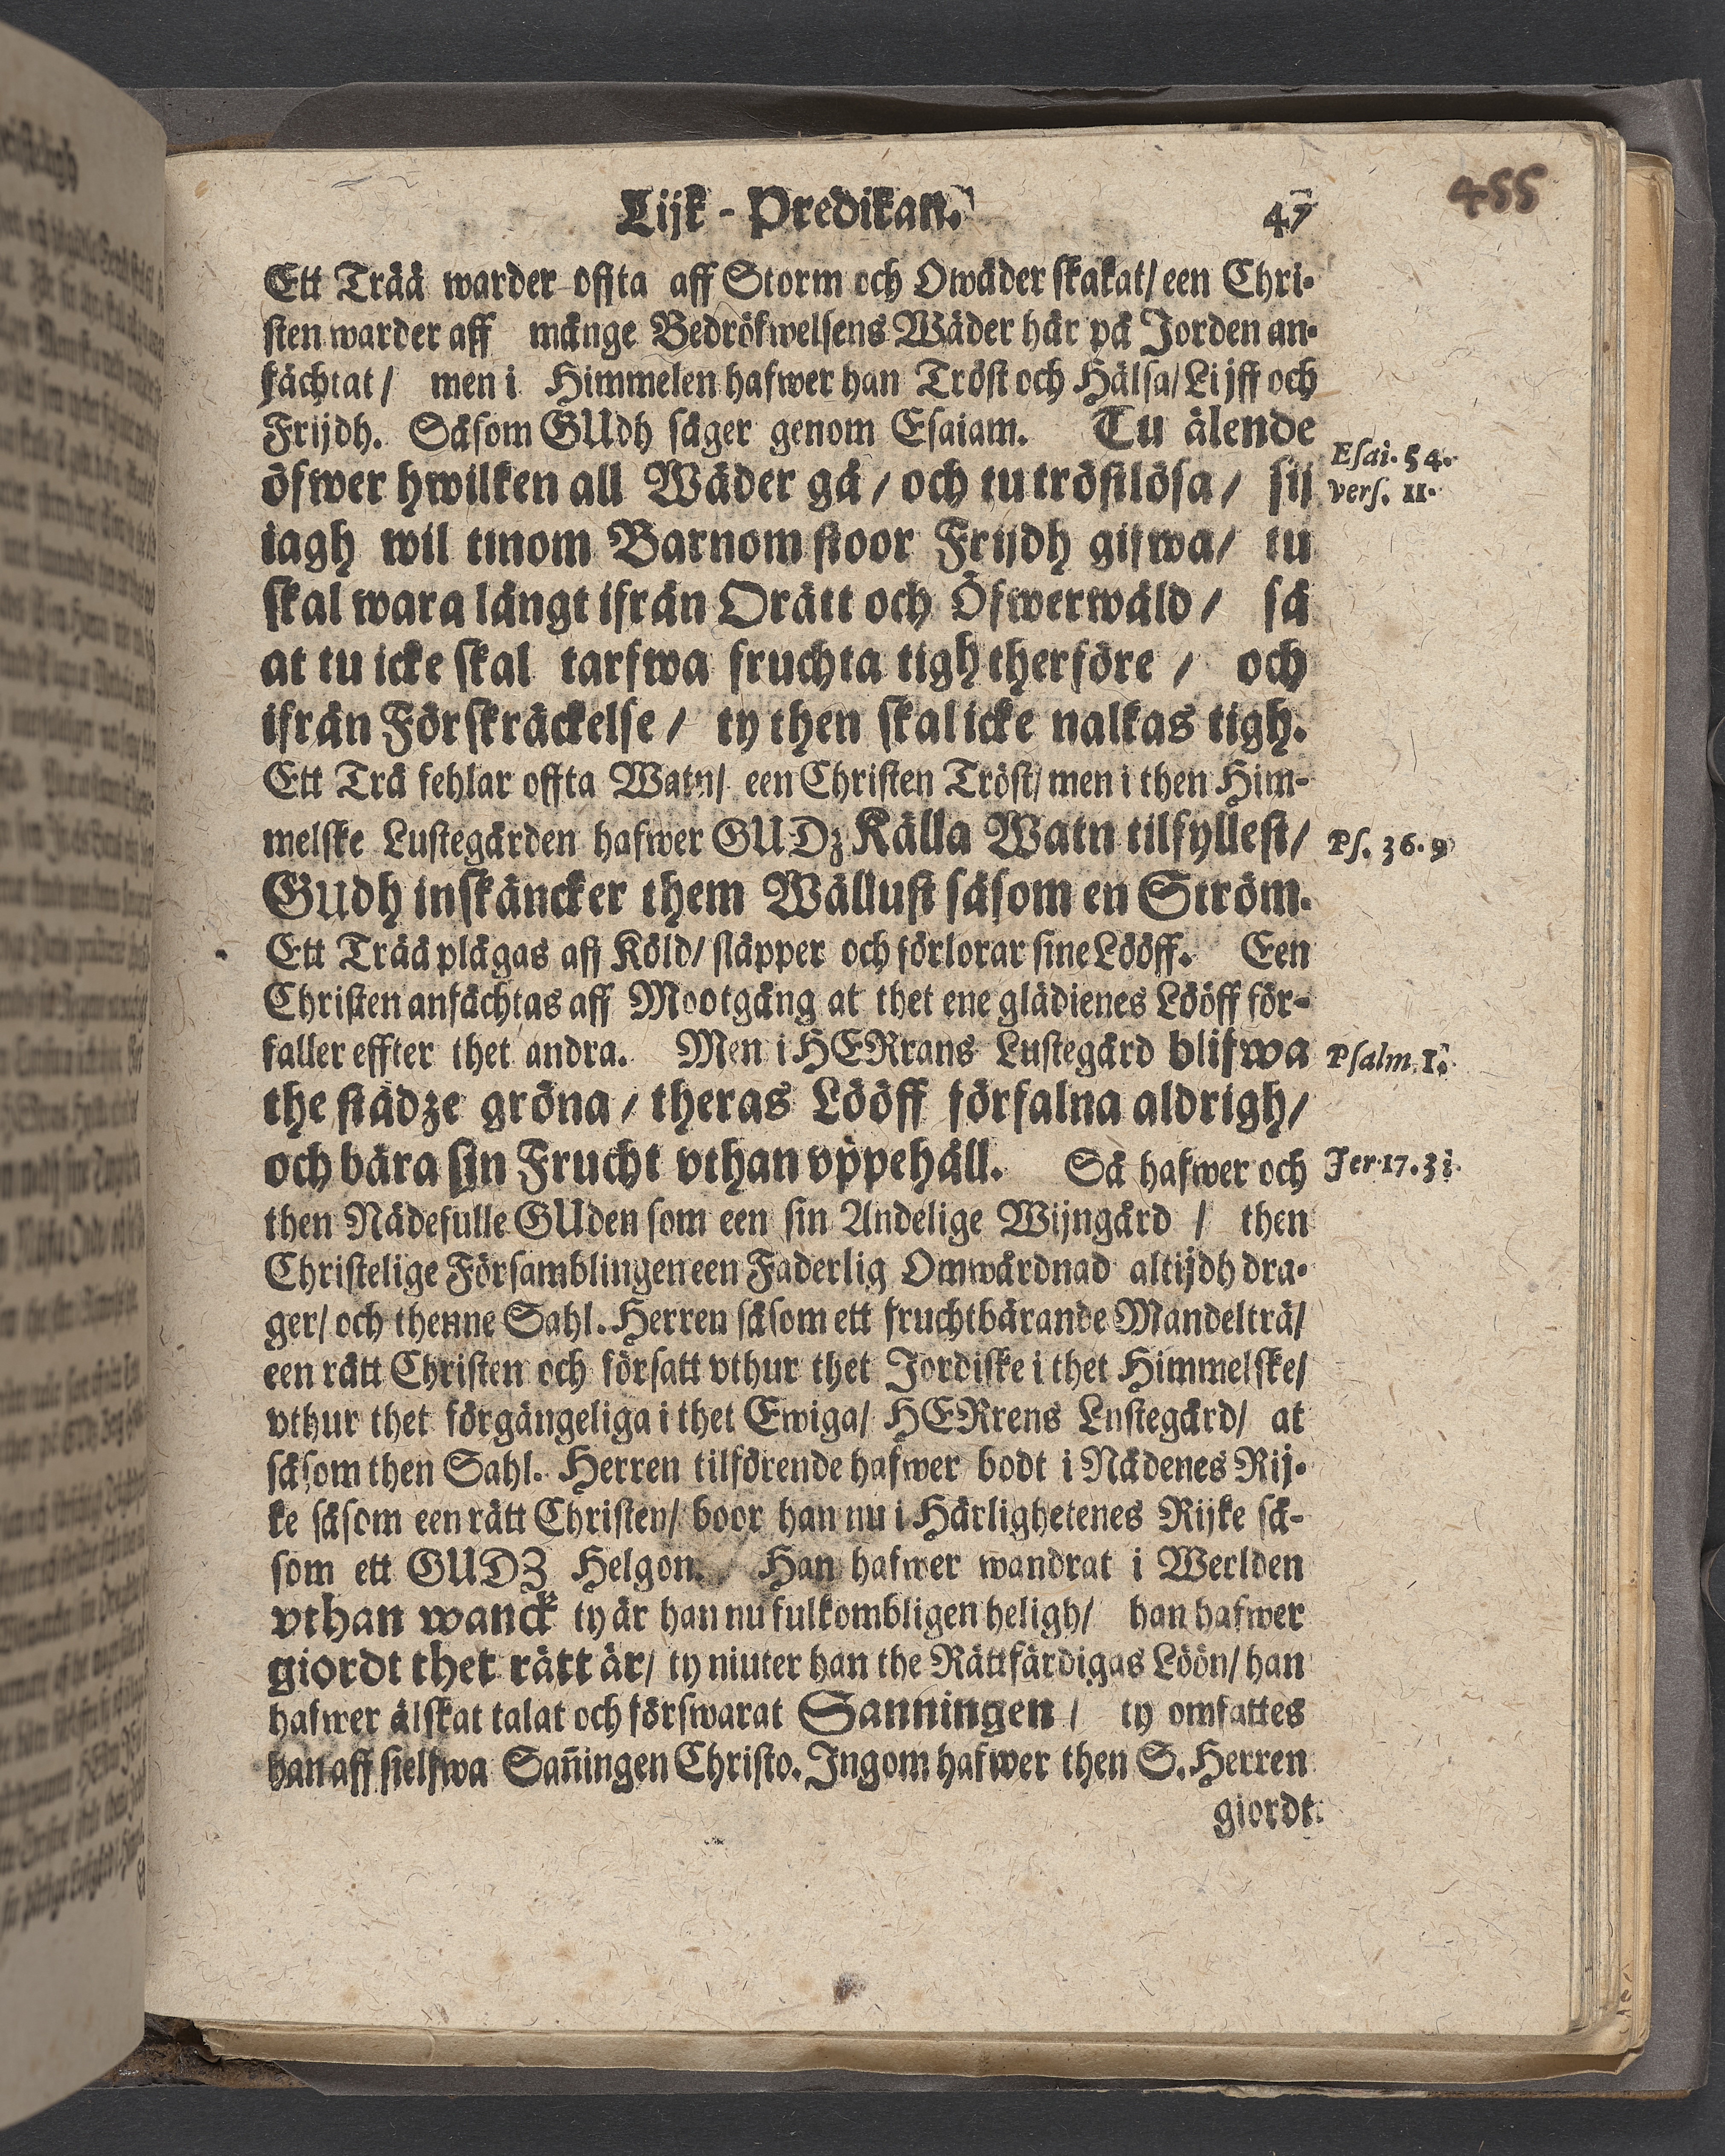 Lijk - Predikan. 47
455
Ett Trää warder offta aff Storm och Owäder skakat/ een Chri-
sten warder aff månge Bedröfwelsens Wäder här på Jorden an-
fächtat/ men i Himmelen hafwer han Tröst och Hälsa/ Lijff och
Frijdh. Såsom GUdh säger genom Esaiam. Tu älende
öfwer hwilken all Wäder gå / och tu tröstlösa / sij
iagh wil tinom Barnom stoor Frijdh gifwa/ tu
skal wara långt ifrån Orätt och Öfwerwåld / så
at tu icke skal tarfwa fruchta tigh therföre / och
ifrån Förskräckelse / ty then skal icke nalkas tigh.
Esai. 54.
vers. 11.
Ett Trä fehlar offta Watn/ een Christen Tröst/ men i then Him-
melske Lustegården hafwer GUDz Källa Watn tilfyllest/
GUdh inskäncker them Wällust såsom en Ström.
Ps. 36. 9
Ett Trää plågas aff Köld/ släpper och förlorar sine Lööff. Een
Christen anfächtas aff Mootgång at thet ene glädienes Lööff för-
faller effter thet andra. Men i HERrans Lustegård blifwa
the städze gröna / theras Lööff förfalna aldrigh/
och bära sin Frucht vthan vppehåll. Så hafwer och
Psalm. 1.
Jer. 17. 3
then Nådefulle GUden som een sin Andelige Wijngård / then
Christelige Församblingen een Faderlig Omwårdnad altijdh dra-
ger/ och thenne Sahl. Herren såsom ett fruchtbärande Mandelträ/
een rätt Christen och försatt vthur thet Jordiske i thet Himmelske/
vthur thet förgängeliga i thet Ewiga/ HERrens Lustegård/ at
såsom then Sahl. Herren tilförende hafwer bodt i Nådenes Rij-
ke såsom een rätt Christen/ boor han nu i Härlighetenes Rijke så-
som ett GUDZ Helgon. Han hafwer wandrat i Werlden
vthan wanck ty är han nu fulkombligen heligh/ han hafwer
giordt thet rätt är/ ty niuter han the Rättfärdigas Löön/ han
hafwer älskat talat och förswarat Sanningen / ty omfattes
han aff sielfwa Sañingen Christo. Ingom hafwer then S. Herren
giordt